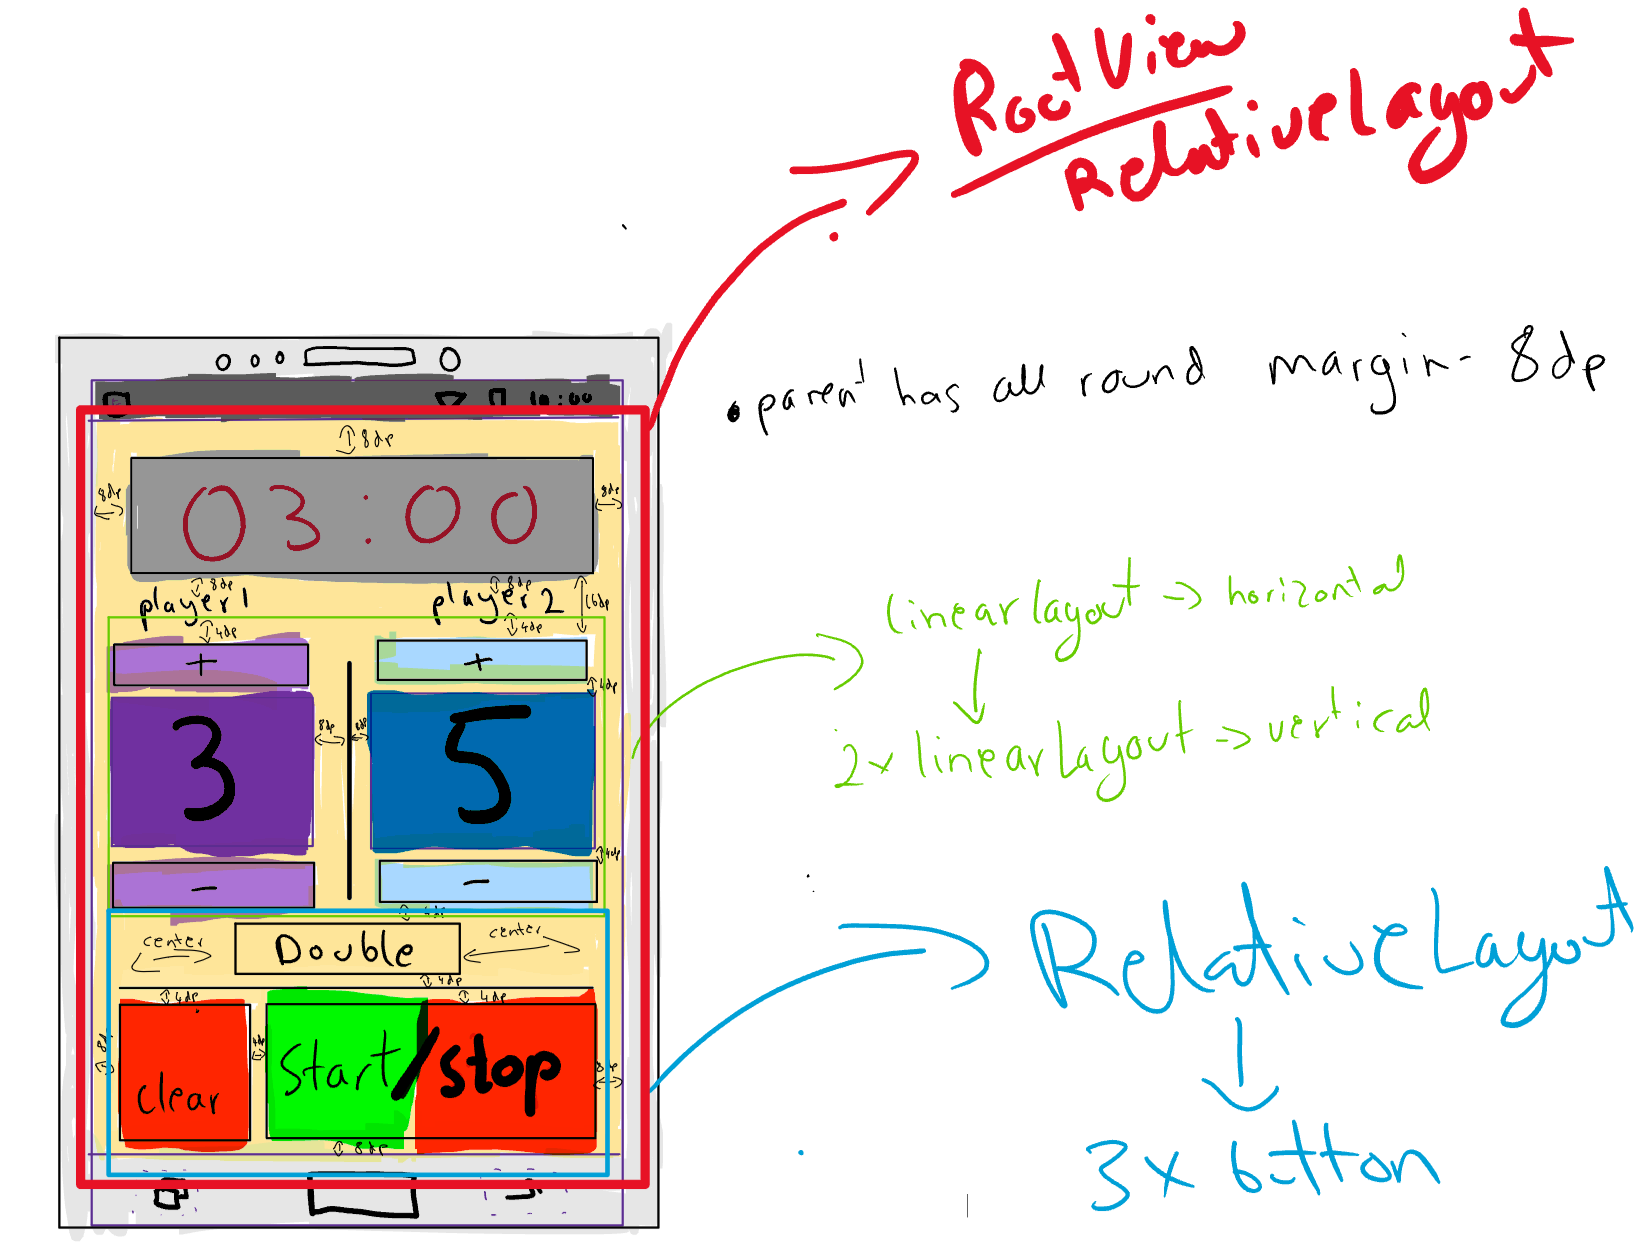 RootView
RelativeLayout
• parent has all round margin- 8dp
10:00
8dp
03:00
8dp
8dp
8dp
8dp
player 1
player 2
16dp
4dp
4dp
+
+
4dp
3
5
8dp
8dp
4dp
-
-
4dp
center
Double
center
4dp
4dp
4dp
8dp
4dp
8dp
clear
Start/stop
8dp
linearlayout -> horizontal
2x linearLayout -> vertical
RelativeLayout
3 x button